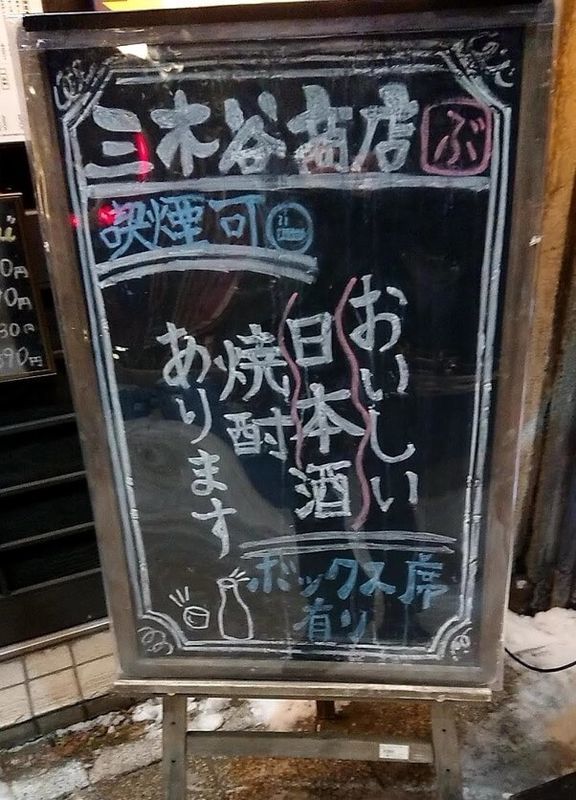 三木谷商店 ぶ
喫煙可
おいしい
日本酒
焼酎
あります
ボックス席
有り
0円
0円
30円
390円